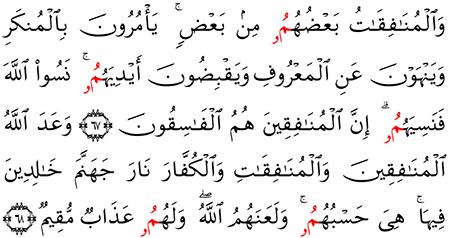 وَٱلْمُنَٰفِقَٰتُ بَعْضُهُمُۥ مِنۢ بَعْضٍۢ ۚ يَأْمُرُونَ بِٱلْمُنكَرِ
وَيَنْهَوْنَ عَنِ ٱلْمَعْرُوفِ وَيَقْبِضُونَ أَيْدِيَهُمُۥ ۚ نَسُوا۟ ٱللَّهَ
فَنَسِيَهُمُۥ ۗ إِنَّ ٱلْمُنَٰفِقِينَ هُمُ ٱلْفَٰسِقُونَ ﴿٦٧﴾ وَعَدَ ٱللَّهُ
ٱلْمُنَٰفِقِينَ وَٱلْمُنَٰفِقَٰتِ وَٱلْكُفَّارَ نَارَ جَهَنَّمَ خَٰلِدِينَ
فِيهَا ۚ هِىَ حَسْبُهُمُۥ ۚ وَلَعَنَهُمُ ٱللَّهُ ۖ وَلَهُمُۥ عَذَابٌۭ مُّقِيمٌۭ ﴿٦٨﴾